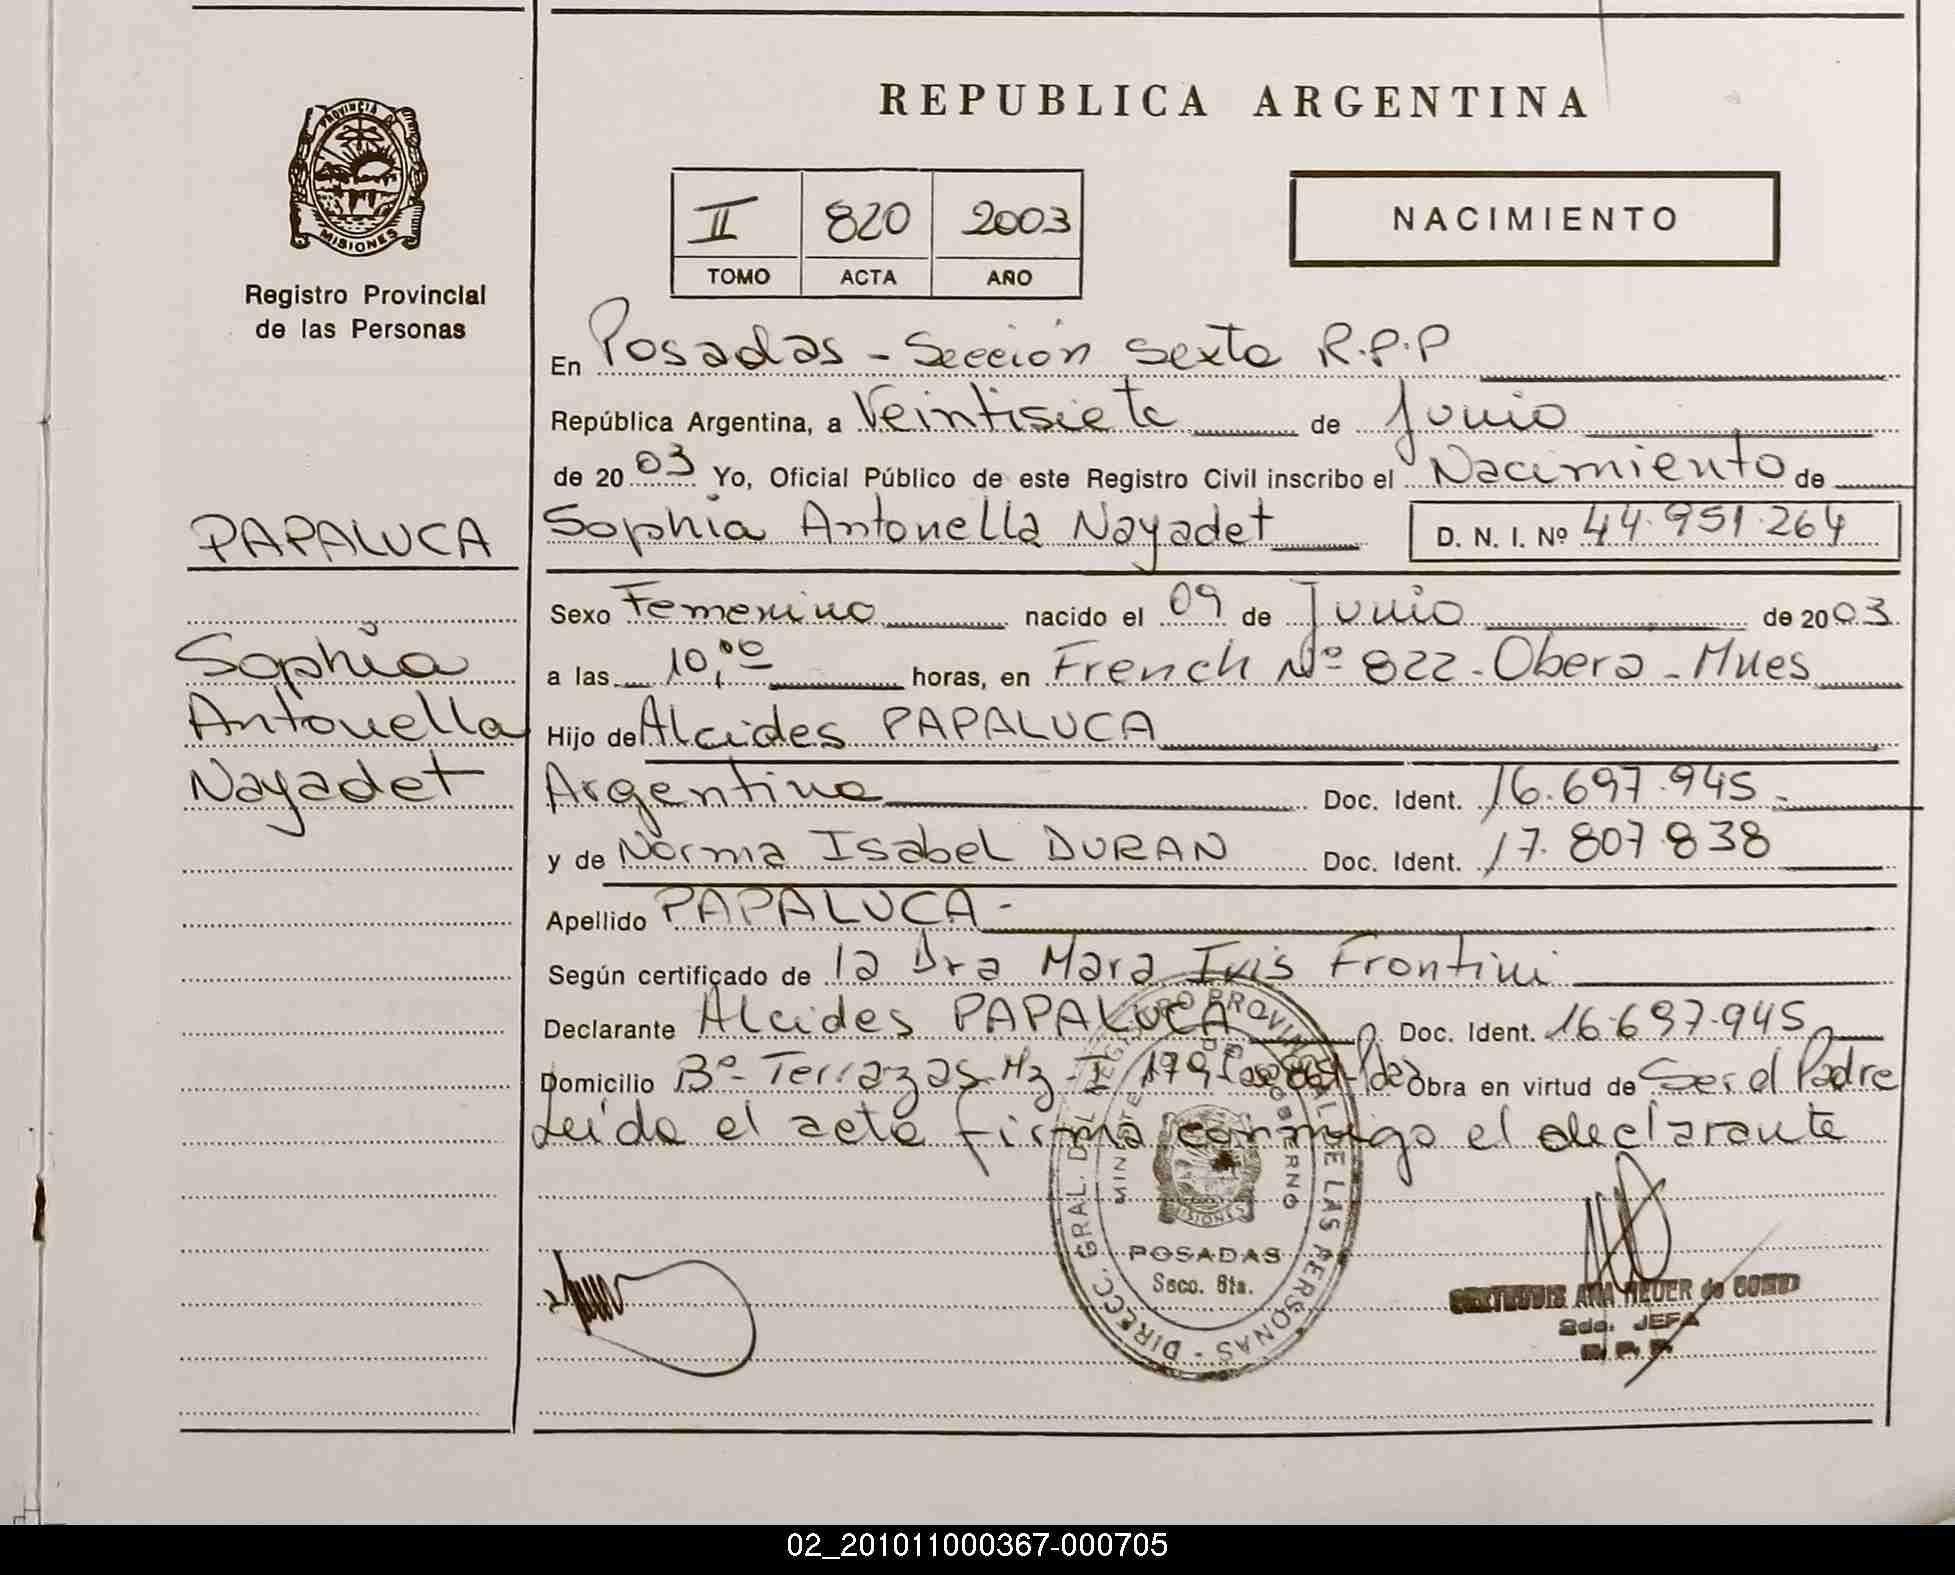 PROVINCIA DE
MISIONES
Registro Provincial
de las Personas
PAPALUCA
Sophia
Antonella
Nayadet
REPUBLICA ARGENTINA
II 820 2003
TOMO ACTA AÑO
NACIMIENTO
En Posadas - Sección Sexta R.P.P
República Argentina, a Veintisiete de Junio
de 2003 Yo, Oficial Público de este Registro Civil inscribo el Nacimiento de
Sophia Antonella Nayadet D. N. I. Nº 44.951.264
Sexo Femenino nacido el 09 de Junio de 2003
a las 10,00 horas, en French Nº 822 - Obera - Mnes
Hijo de Alcides PAPALUCA
Argentino Doc. Ident. 16.697.945
y de Norma Isabel DURAN Doc. Ident. 17.807.838
Apellido PAPALUCA -
Según certificado de la Dra Mara Ivis Frontini
Declarante Alcides PAPALUCA Doc. Ident. 16.697.945
Domicilio Bº- Terrazas Mz - I 179 Obra en virtud de Ser el Padre
Leida el acta firma conmigo el declarante
DIRECC. GRAL. DEL REGISTRO PROVINCIAL DE LAS PERSONAS
MINISTERIO DE GOBIERNO
MISIONES
POSADAS
Secc. 6ta.
ANA NEUER de
2da. JEFA
R. P. P.
02_201011000367-000705